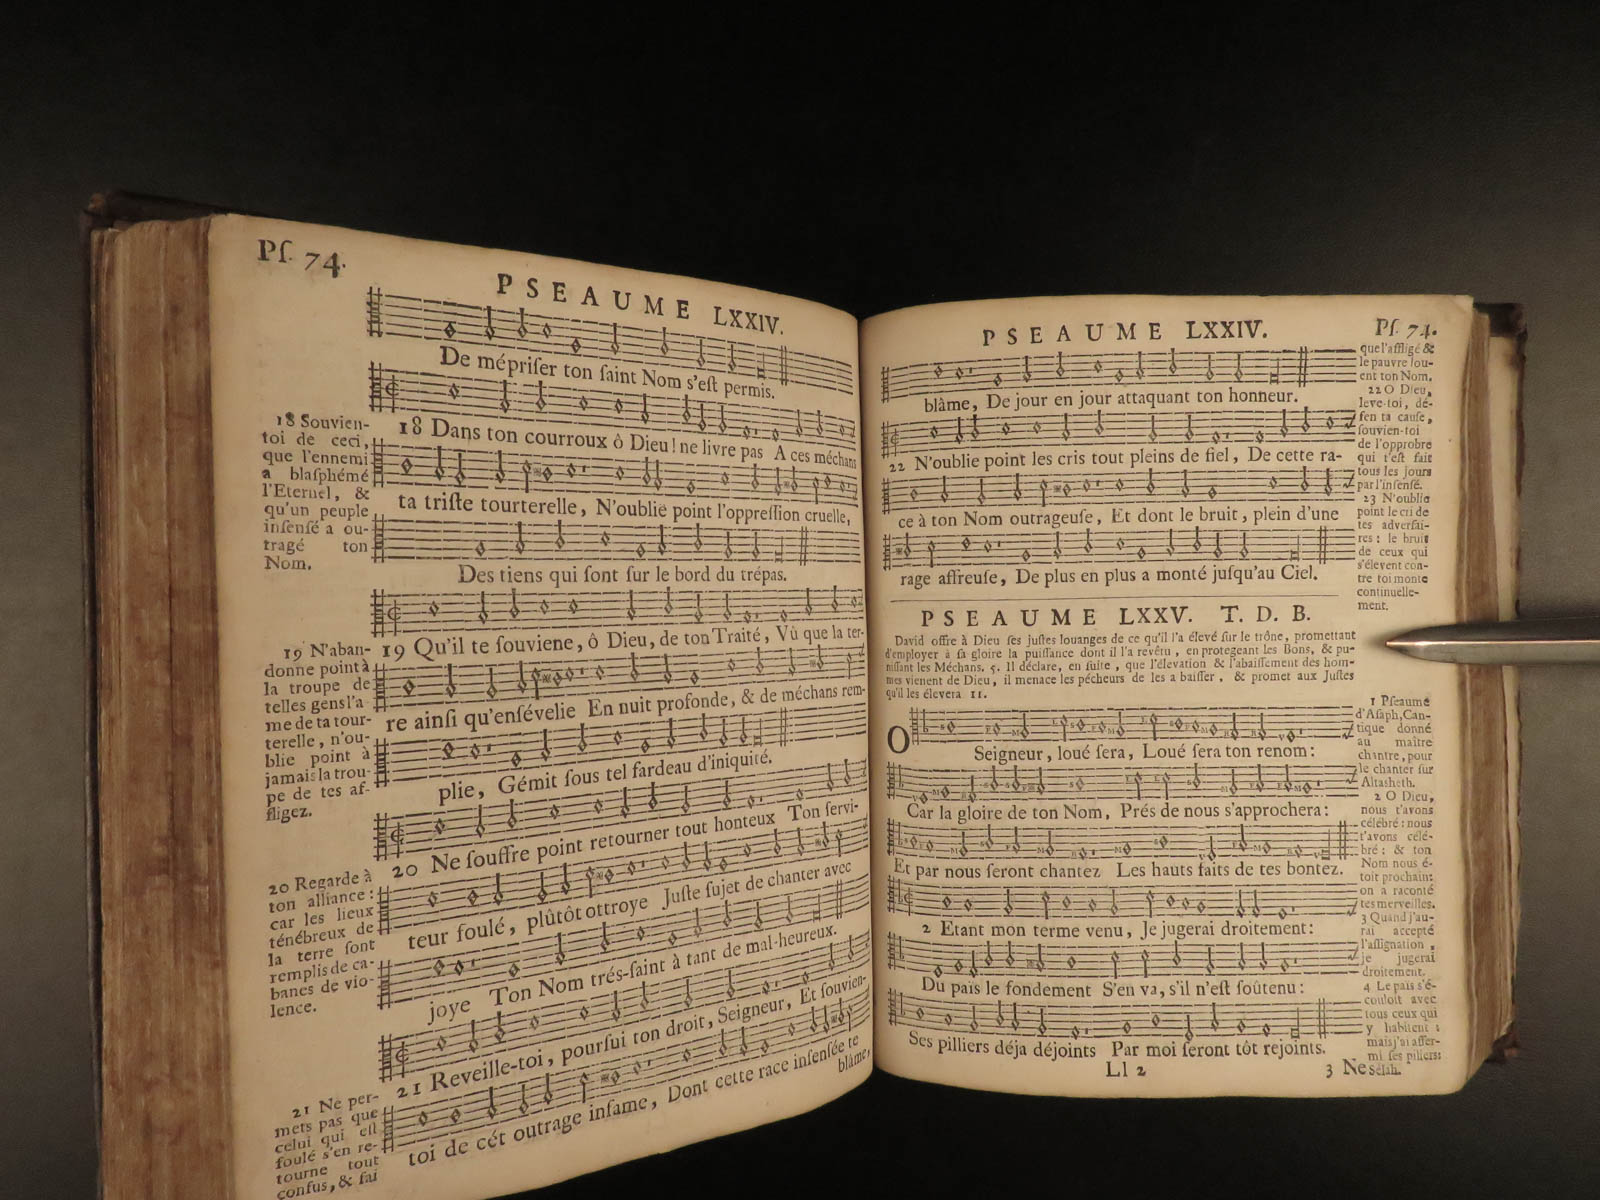 Pſ. 74.
PSEAUME LXXIV.
De mépriſer ton ſaint Nom s'eſt permis.
18 Dans ton courroux ô Dieu! ne livre pas A ces méchans
ta triſte tourterelle, N'oublie point l'oppreſſion cruelle,
Des tiens qui ſont ſur le bord du trépas.
19 Qu'il te ſouviene, ô Dieu, de ton Traité, Vû que la ter-
re ainſi qu'enſévelie En nuit profonde, & de méchans rem-
plie, Gémit ſous tel fardeau d'iniquité.
20 Ne ſouffre point retourner tout honteux Ton ſervi-
teur foulé, plûtôt ottroye Juſte ſujet de chanter avec
joye Ton Nom trés-ſaint à tant de mal-heureux.
21 Reveille-toi, pourſui ton droit, Seigneur, Et ſouvien-
toi de cét outrage infame, Dont cette race inſenſée te
blâme,
18 Souvien-
toi de ceci,
que l'ennemi
a blaſphémé
l'Eternel, &
qu'un peuple
inſenſé a ou-
tragé ton
Nom.
19 N'aban-
donne point à
la troupe de
telles gens l'a-
me de ta tour-
terelle, n'ou-
blie point à
jamais la trou-
pe de tes af-
fligez.
20 Regarde à
ton alliance:
car les lieux
ténébreux de
la terre ſont
remplis de ca-
banes de vio-
lence.
21 Ne per-
mets pas que
celui qui eſt
foulé s'en re-
tourne tout
confus, & fai
PSEAUME LXXIV.
Pſ. 74.
blâme, De jour en jour attaquant ton honneur.
22 N'oublie point les cris tout pleins de fiel, De cette ra-
ce à ton Nom outrageuſe, Et dont le bruit, plein d'une
rage affreuſe, De plus en plus a monté juſqu'au Ciel.
PSEAUME LXXV. T. D. B.
David offre à Dieu ſes juſtes louanges de ce qu'il l'a élevé ſur le trône, promettant
d'employer à ſa gloire la puiſſance dont il l'a revêtu, en protegeant les Bons, & pu-
niſſant les Méchans. 5. Il déclare, en ſuite, que l'élevation & l'abaiſſement des hom-
mes vienent de Dieu, il menace les pécheurs de les abaiſſer, & promet aux Juſtes
qu'il les élevera 11.
O
Seigneur, loué ſera, Loué ſera ton renom:
Car la gloire de ton Nom, Prés de nous s'approchera:
Et par nous ſeront chantez Les hauts faits de tes bontez.
2 Etant mon terme venu, Je jugerai droitement:
Du païs le fondement S'en va, s'il n'eſt ſoûtenu:
Ses pilliers déja déjoints Par moi ſeront tôt rejoints.
Ll 2
3 Ne
que l'affligé &
le pauvre lou-
ent ton Nom.
22 O Dieu,
leve-toi, dé-
fen ta cauſe,
ſouvien-toi
de l'opprobre
qui t'eſt fait
tous les jours
par l'inſenſé.
23 N'oublie
point le cri de
tes adverſai-
res: le bruit
de ceux qui
s'élevent con-
tre toi monte
continuelle-
ment.
1 Pſeaume
d'Aſaph, Can-
tique donné
au maître
chantre, pour
le chanter ſur
Altasheth.
2 O Dieu,
nous t'avons
célébré: nous
t'avons célé-
bré: & ton
Nom nous é-
toit prochain:
on a raconté
tes merveilles.
3 Quand j'au-
rai accepté
l'aſſignation,
je jugerai
droitement.
4 Le païs s'é-
couloit avec
tous ceux qui
y habitent:
mais j'ai affer-
mi ſes piliers:
Sélah.